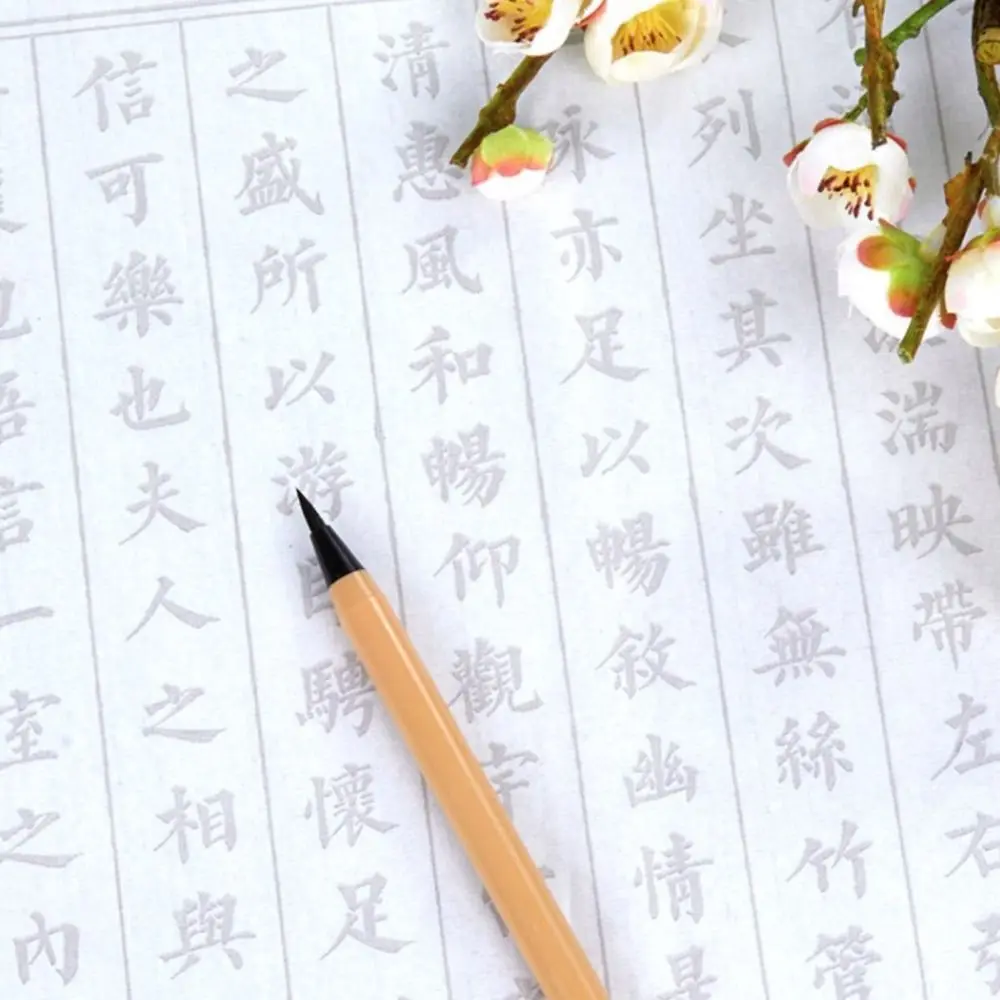 湍映帶左右引
列坐其次雖無絲竹管
詠亦足以暢敘幽情是
清惠風和暢仰觀宇
之盛所以游目騁懷足
信可樂也夫人之相與
悟言一室之內